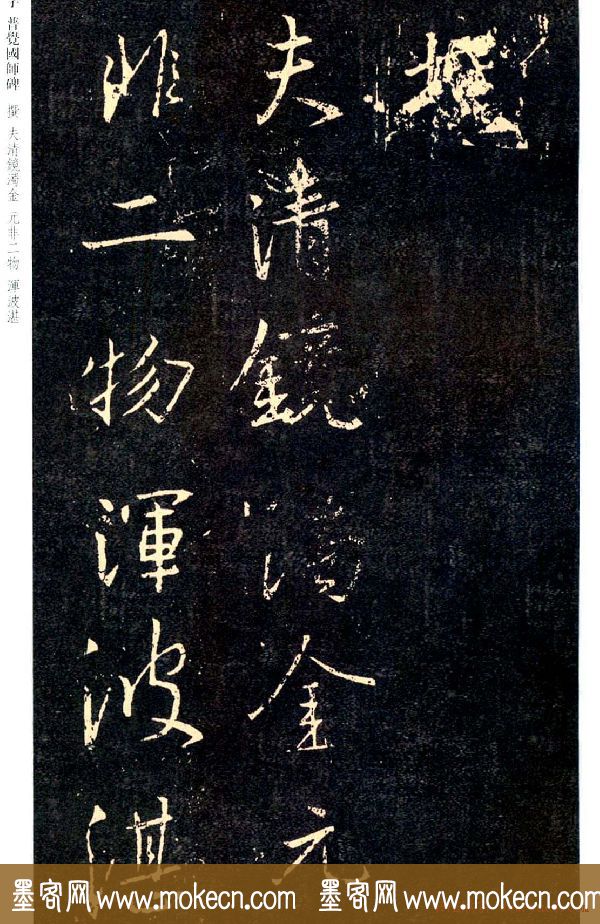 撰
夫清鏡濁金元
非二物渾波湛
普覺國師碑 撰 夫清鏡濁金 元非二物 渾波湛
墨客网 www.mokecn.com 墨客网 www.mokecn.com